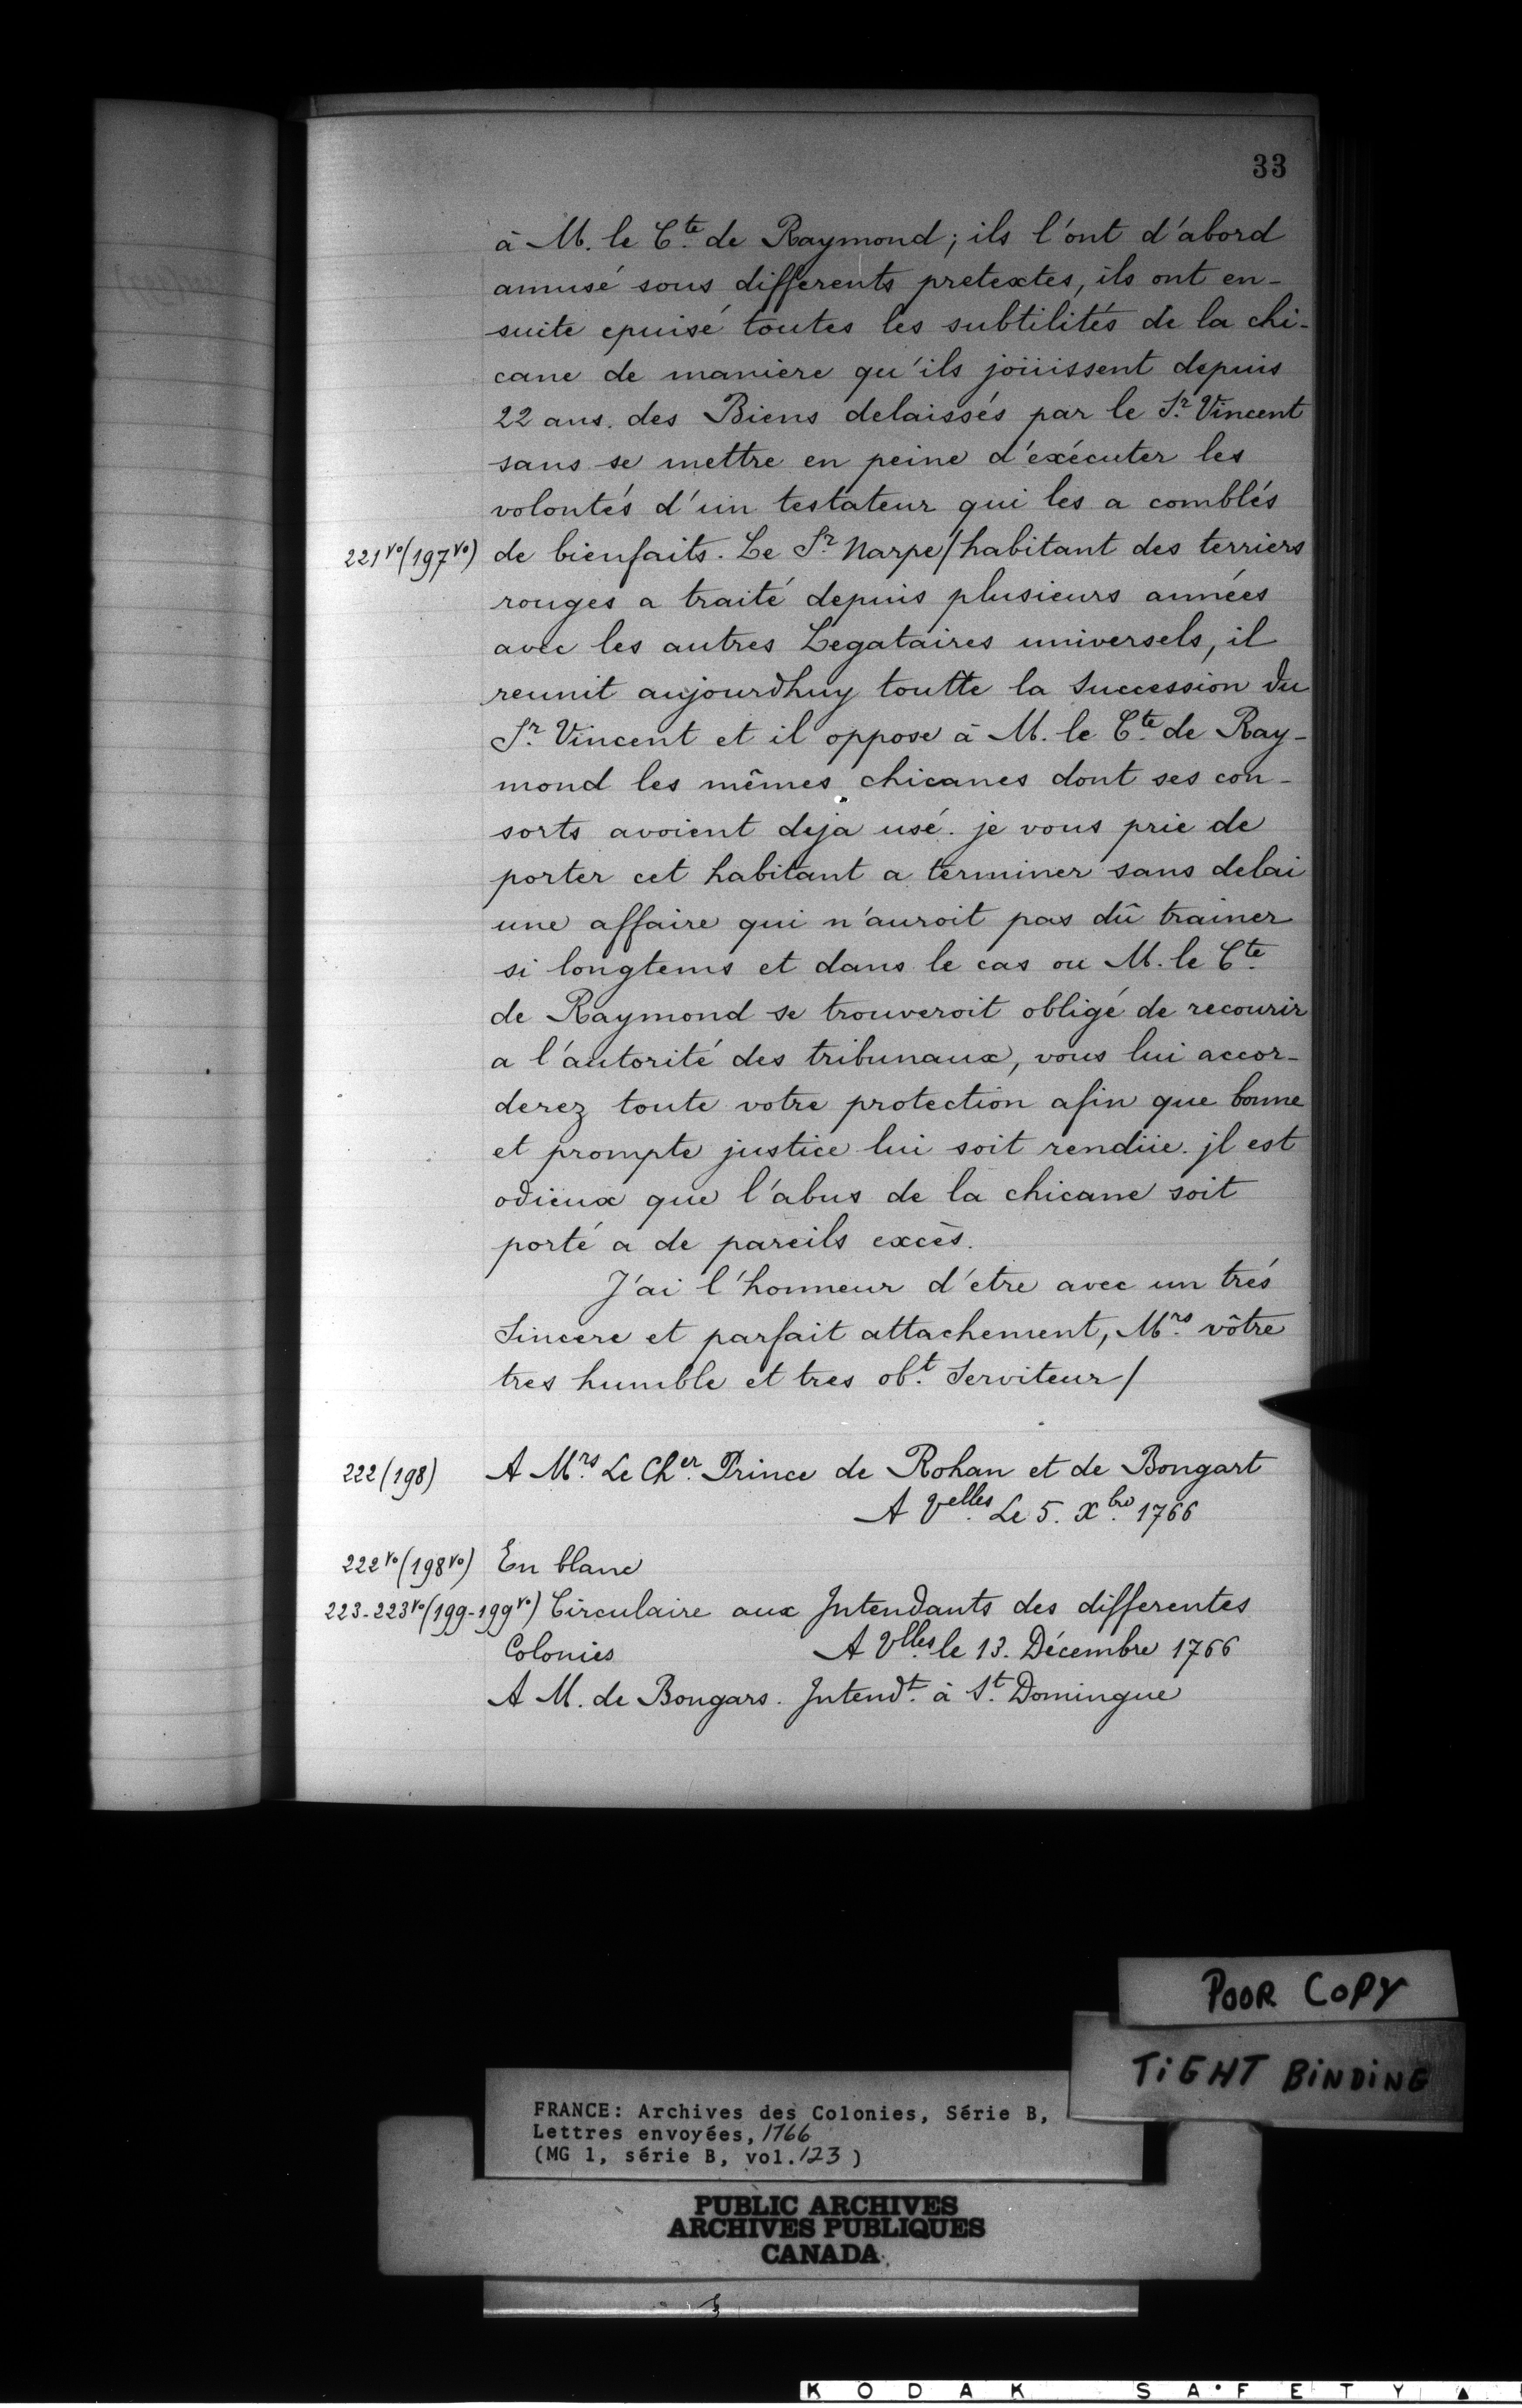 33
à M. le Cte. de Raymond; ils l'ont d'abord
amusé sous differents pretextes, ils ont en-
suite epuisé toutes les subtilités de la chi-
cane de maniere qu'ils joüissent depuis
22 ans. des Biens delaissés par le Sr. Vincent
sans se mettre en peine d'exécuter les
volontés d'un testateur qui les a comblés
221vo(197vo) de bienfaits. Le Sr. Narpe/habitant des terriers
rouges a traité depuis plusieurs années
avec les autres Legataires universels, il
reunit aujourdhuy toutte la Succession du
Sr. Vincent et il oppose à M. le Cte. de Ray-
mond les mêmes chicanes dont ses con-
sorts avoient deja usé. je vous prie de
porter cet habitant a terminer sans delai
une affaire qui n'auroit pas dû trainer
si longtems et dans le cas ou M. le Cte.
de Raymond se trouveroit obligé de recourir
a l'autorité des tribunaux, vous lui accor-
derez toute votre protection afin que bonne
et prompte justice lui soit rendüe. jl est
odieux que l'abus de la chicane soit
porté a de pareils excès.
J'ai l'honneur d'etre avec un trés
Sincere et parfait attachement, Mrs. vôtre
tres humble et tres obt. Serviteur/
222(198) A Mrs. Le Cher. Prince de Rohan et de Bongart
A Velles. Le 5. Xbre. 1766
222vo(198vo) En blanc
223-223vo(199-199vo) Circulaire aux Jntendants des differentes
Colonies A Vlles. le 13. Décembre 1766
A M. de Bongars. Jntendt. à St. Domingue
POOR COPY
TIGHT BINDING
FRANCE: Archives des Colonies, Série B,
Lettres envoyées, 1766
(MG 1, série B, vol. 123)
PUBLIC ARCHIVES
ARCHIVES PUBLIQUES
CANADA
KODAK SAFETY